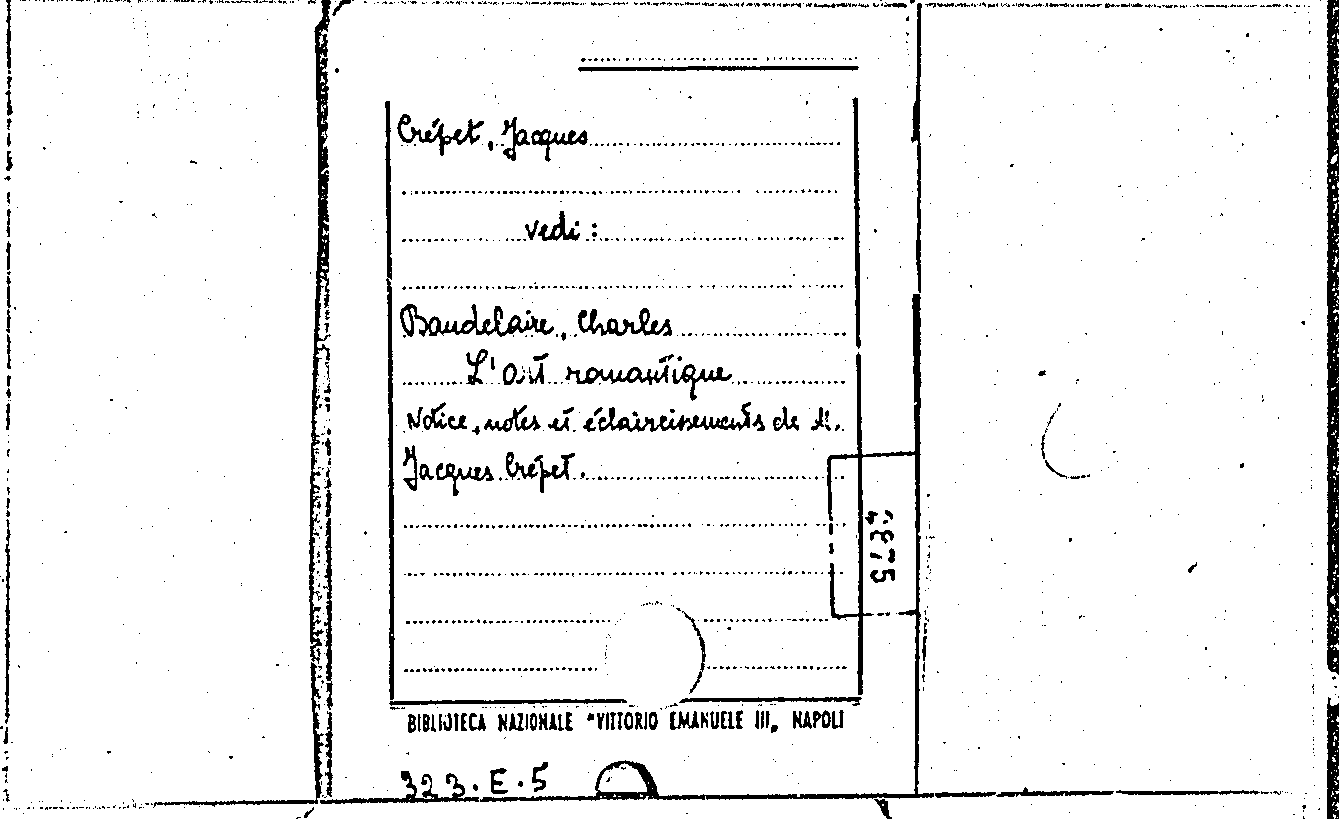 Crépet, Jacques
vedi:
Baudelaire, Charles
L'art romantique
Notice, notes et éclaircissements de M.
Jacques Crépet.
BIBLIOTECA NAZIONALE "VITTORIO EMANUELE III„ NAPOLI
323.E.5